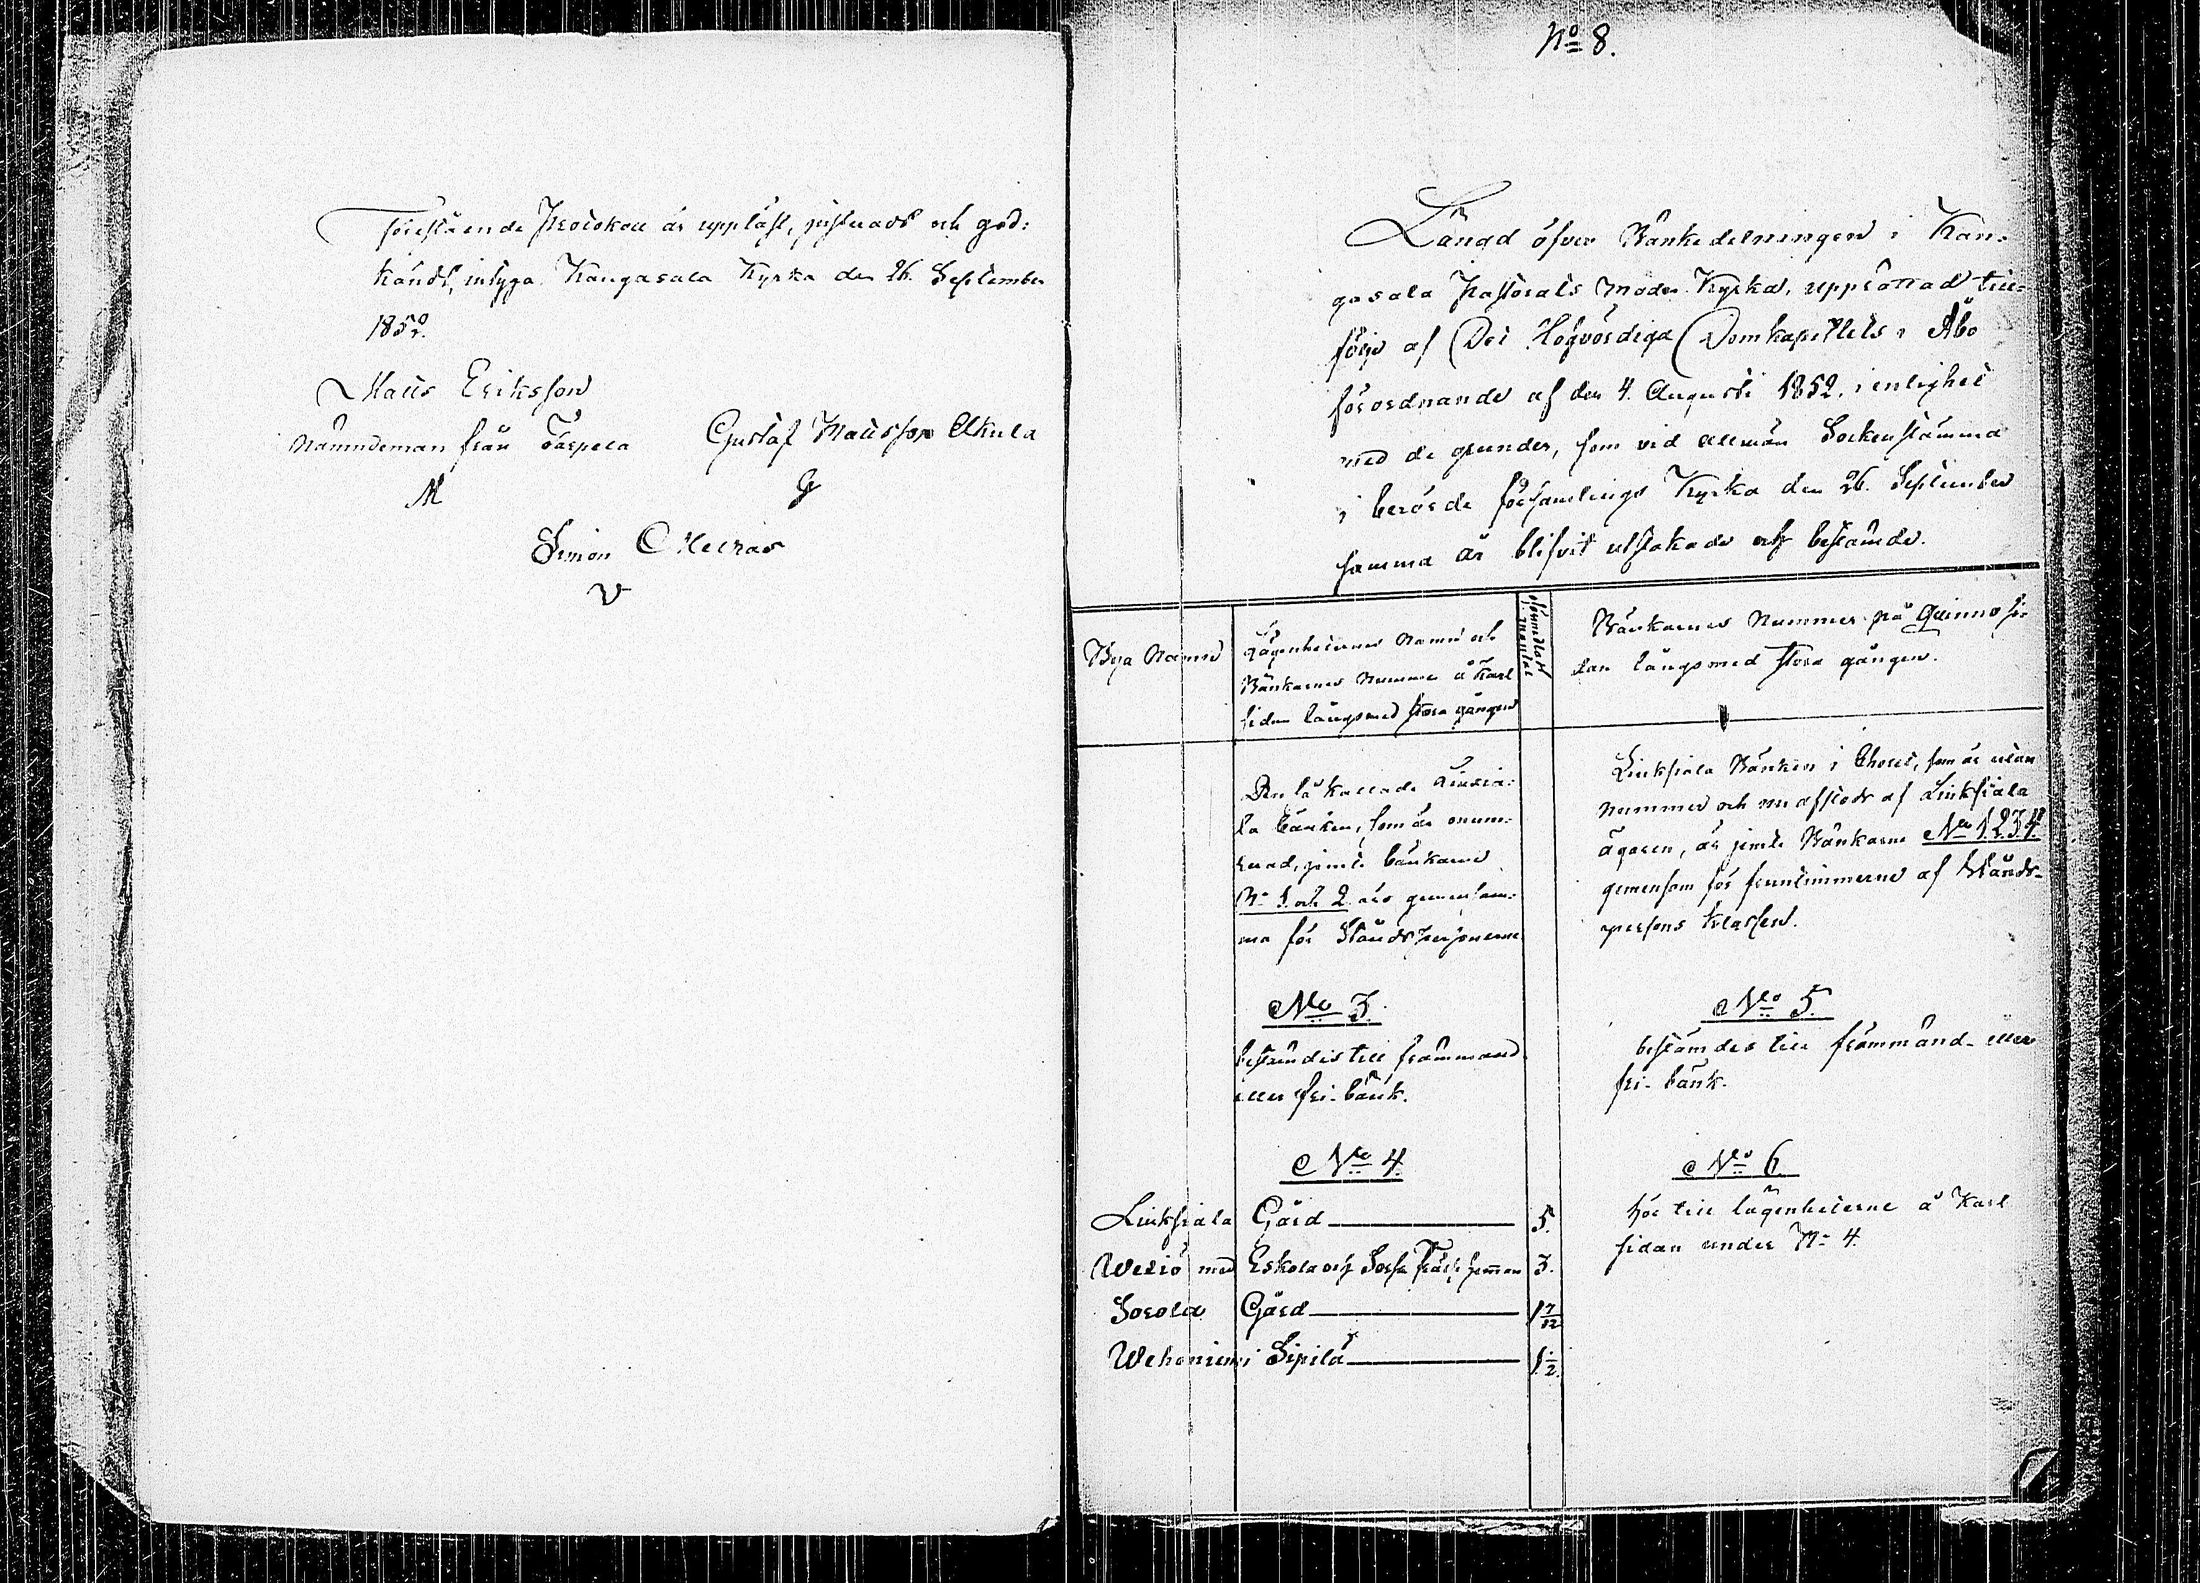 Förestående Protokoll är uppläst, justeradt och god:
kändt, intyga. Kangasala Kyrka den 26. September
1852.
Matts Eriksson
Nämndeman från Tarpela
Gustaf Mattsson Alkula
M
G
Simon
V
No 8.
Längd öfver Bänkedelningen i Kan-
gasala Pastorats Moder Kyrka, upprättad till-
följe af Det Högvördiga Domkapitlets i Åbo
förordnande af den 4. Augusti 1852, i enlighet
med de grunder, som vid allmän Sockenstämma
i berörde församlings Kyrka den 26. September
samma år blifvit utstakade och bestämde.
Bya Namn
Lägenheternes Namn och
Bänkarnes Nummer å Karl
sidan längsmed stora gången
Oförmedladt
mantal
Bänkarnes Nummer på Qvinno si-
dan långsmed stora gången.
Den så kallade Liuxia:
la bänken, som är onum-
rerad, jemte bänkarne
No 1. och 2. äro gemensam-
ma för Ståndspersonerne.
Liuksiala Bänken i Choret, som är utan
nummer och nu afstods af Liuksiala
ägaren, är jemte Bänkarne No 1. 2. 3. 4.
gemensam för fruntimmerne af Stånds-
persons klassen.
No 3.
bestämdes till främmand
eller fri-bänk.
No 5.
bestämdes till främmand- eller
fri-bänk.
No 4.
No 6.
Liuksiala Gård 5.
Wesiö med Eskola och Sorsa hemman 3.
Sorola Gård 1 7/12
Wehoniemi Sipilä 1 1/2.
hör till lägenheterne å Karl
sidan under No 4.